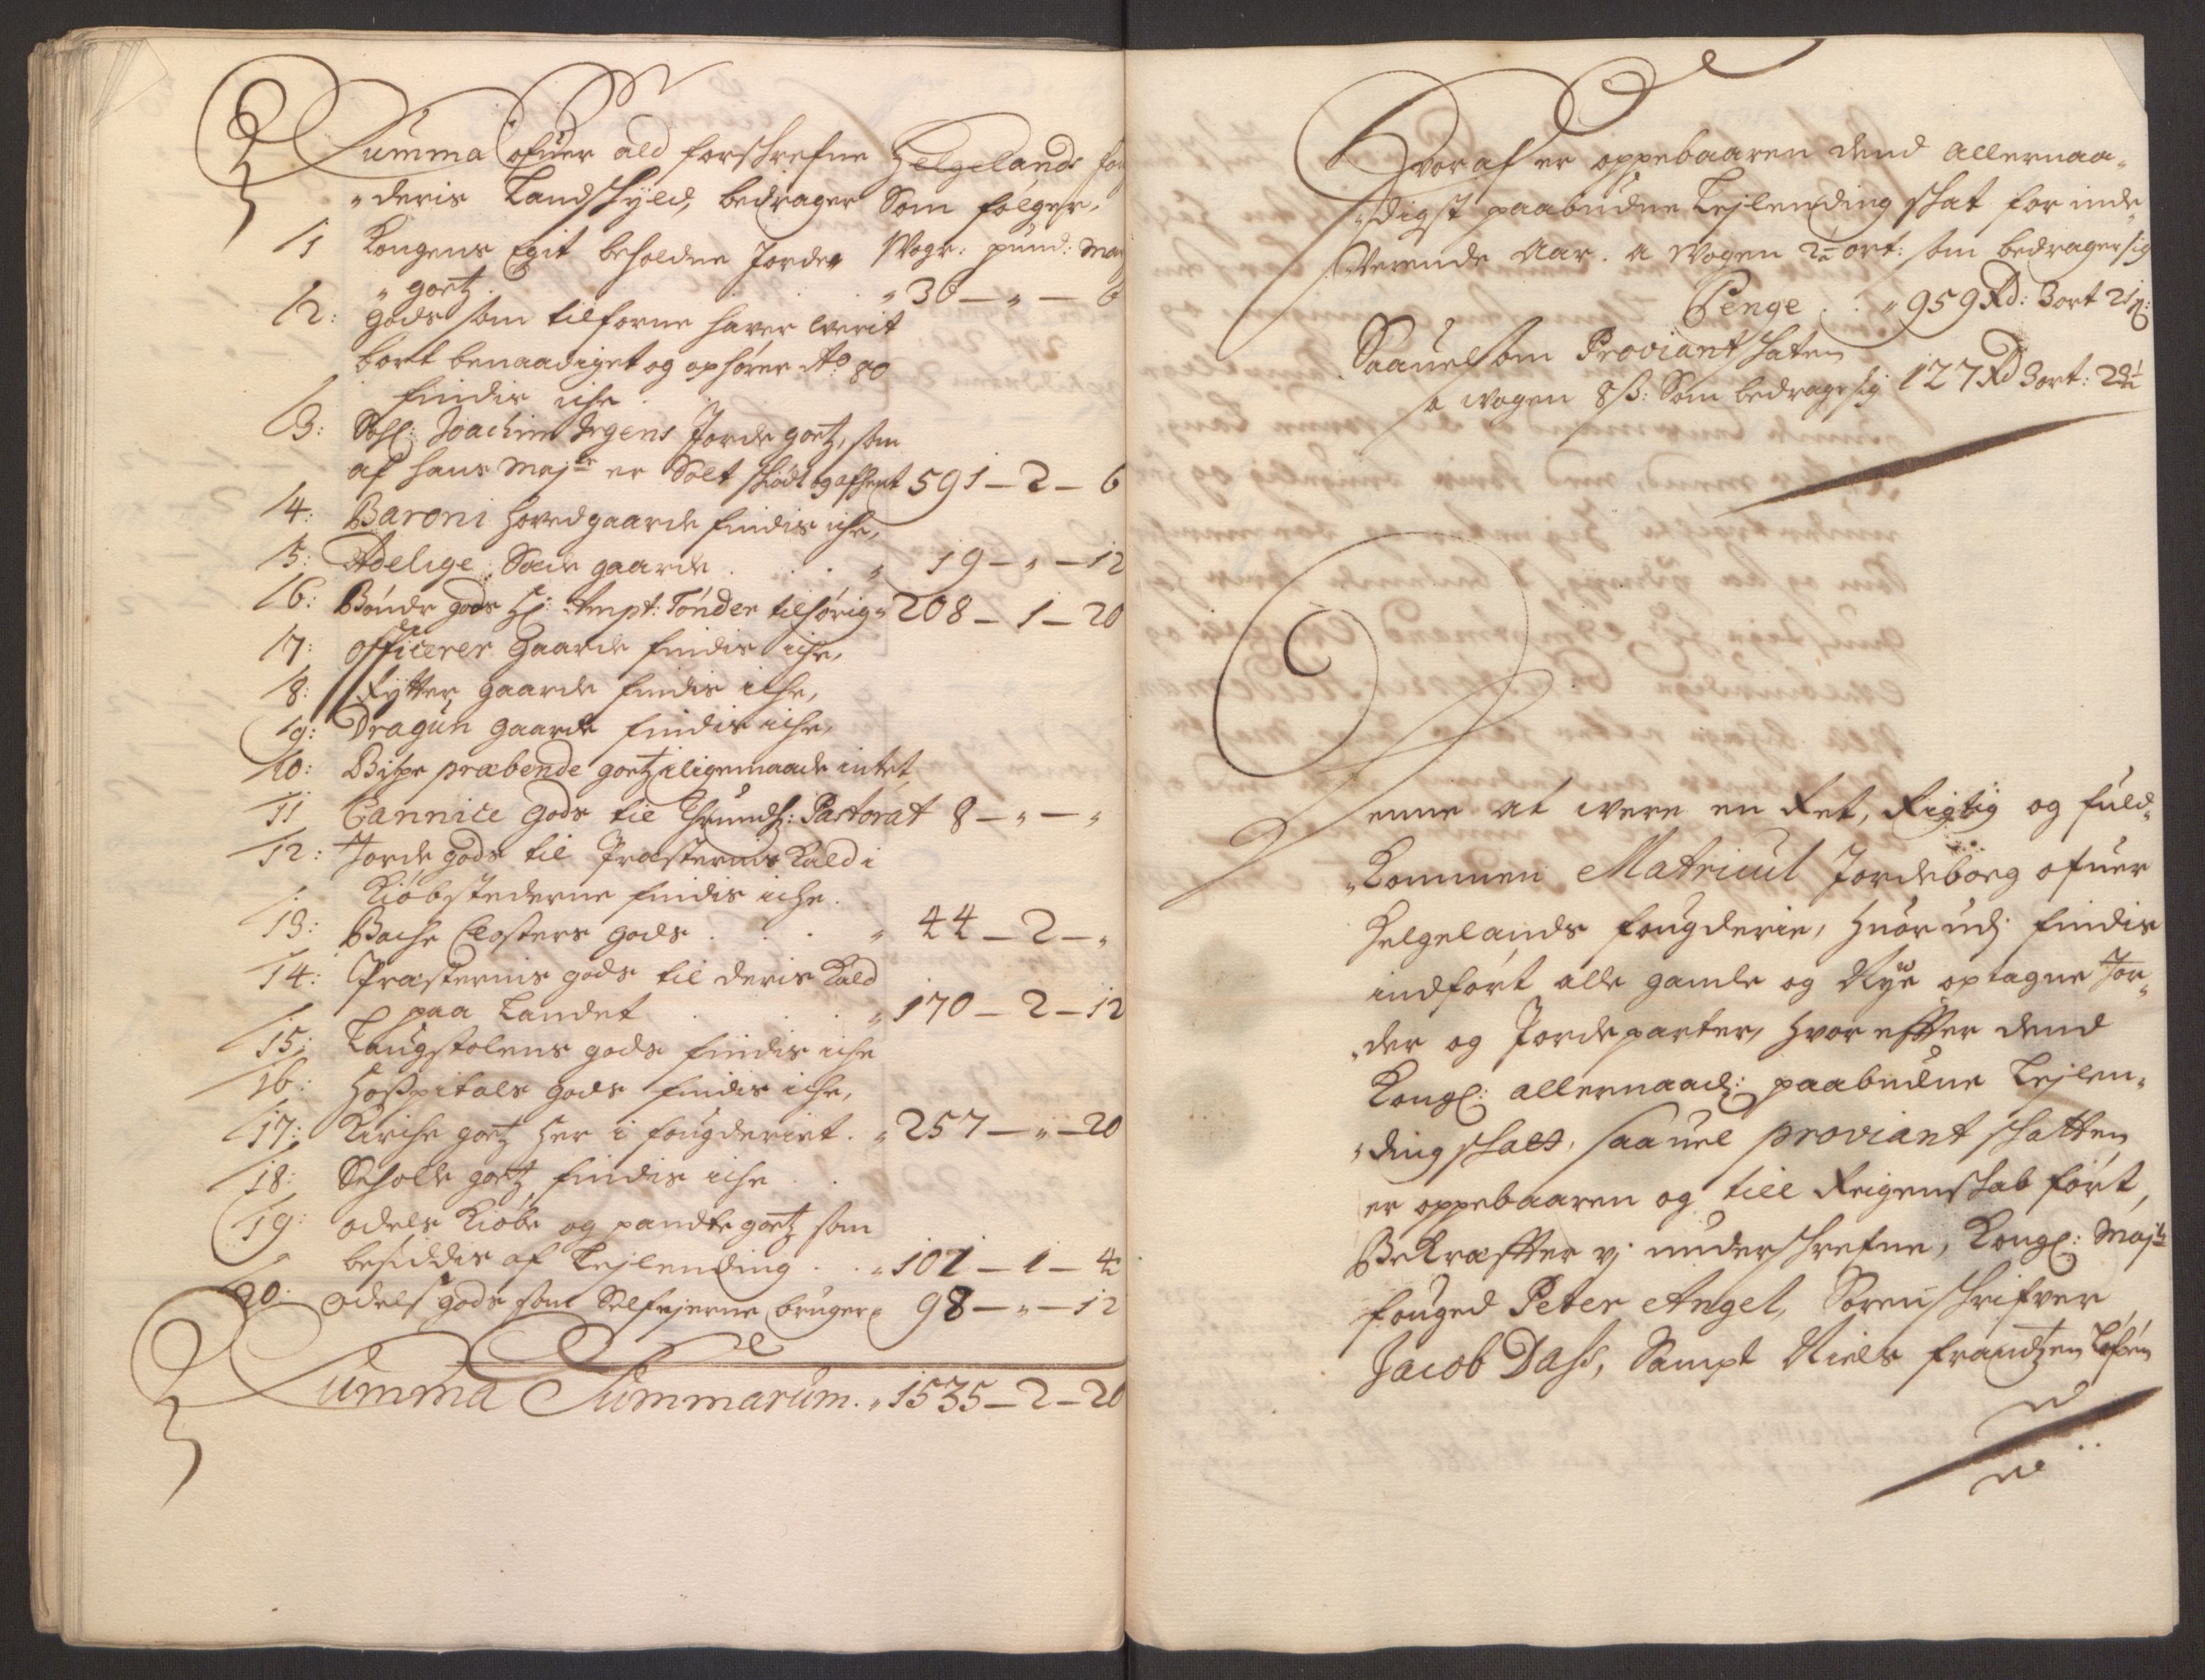 Summa ofuer ald forschrefne Helgelands fou
„deris Landschyld, bedrager Som følger,
1 Kongens Egit beholdne Jorde Wogr: pund: Mar
„goetz . . . „ 36 — „ — 6
2: Gods som tilforne hafver werit
bort benaadiget og ophører Ao 80
findis iche .
3: Sahl: Joachim Irgens Jorde goetz, som
af hans Majte er Solt schiødt og afhent 591 — 2 — 6
4: Baroni hovedgaarde findis iche,
5: Adelige Sæde gaarde . . . „ 19 — „ — 12
6: Bønder gods Hr: Ampt: Tønder tilhørig „ 208 — 1 — 20
7: officerer Gaarde findis iche,
8: Rytter gaarde findis iche,
9: Dragun gaarde findis iche,
10: Bispe præbende goetz iligemaade intet,
11 Cannice Gods til Thrundh: Pastorat 8 — „ — „
12: Jorde gods til Præsternis Kald i
Kiøbstederne findis iche .
13: Bache Closters gods . . . „ 44 — 2 — „
14: Præsternis gods til deris Kald
paa Landet . . . „ 170 — 2 — 12
15: Laugstolens gods findis iche
16: Hospitals gods findis iche,
17: Kirche goetz her i fougderiet . „ 257 — „ — 20
18: Schole goetz findis iche . .
19: odels Kiøbe og pandte goetz som
besiddis af Lejlending . . „ 101 — 1 — 4
20: odels gods som Selfejerne bruger „ 98 — „ — 12
Summa Summarum . „ 1535 — 2 — 20
Hvoraf er oppebaaren dend allernaa„
„digst paabudne Lejlending schat for inde„
Werende Aar . a Wogen 2½ ort: som bedrager sig
Penge . . „ 959 Rd: 3 ort 21 ß:
Saauelsom Proviant schaten
a wogen 8 ß: Som bedrager sig 127 Rd 3 ort:
Denne at were en Ret, Rigtig og fuld„
„Kommen Matricul Jordeborg ofuer
Helgelands fougderie, Huorudj findis
indført alle gamle og Nye optagne Jor„
„der og Jordeparter, Hvor effter dend
Kongl: allernaad: paabudne Lejlen„
„ding schatt, saauel proviant schatten
er oppebaaren og till Reigenschab ført,
Bekræffter vj underschrefne, Kongl: Majts
fouged Peter Angel, Sorenschrifver
Jacob Dass, Sampt Niels frandtzen